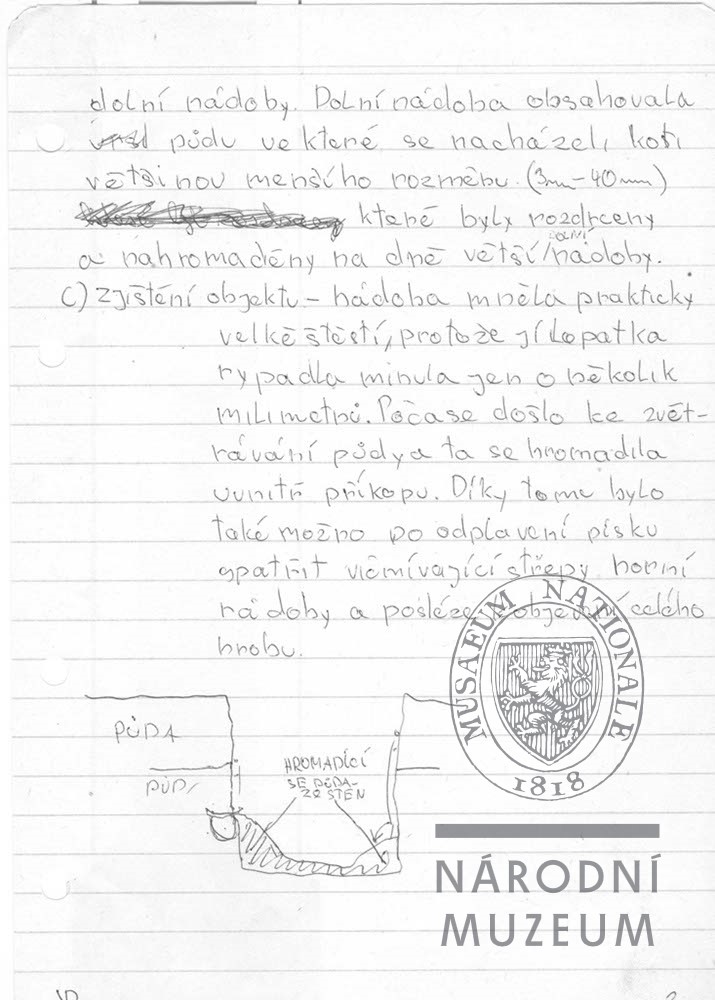 dolní nádoby. Dolní nádoba obsahovala
půdu ve které se nacházeli kosti
většinou menšího rozměru. (3mm – 40mm)
které byly rozdrceny
a nahromaděny na dně větší/dolní nádoby.
C) Zjištění objektu – nádoba mněla prakticky
velké štěstí, protože jí lopatka
rypadla minula jen o několik
milimetrů. Počase došlo ke zvět-
rávání půdy a ta se hromadila
uvnitř příkopu. Díky tomu bylo
také možno po odplavení písku
spatřit vičnívající střepy horní
nádoby a posléze objevení celého
hrobu.
PŮDA
HROMADÍCÍ
SE PŮDA-
ZE STĚN
PŮDA
MUSAEUM NATIONALE
1818
NÁRODNÍ
MUZEUM